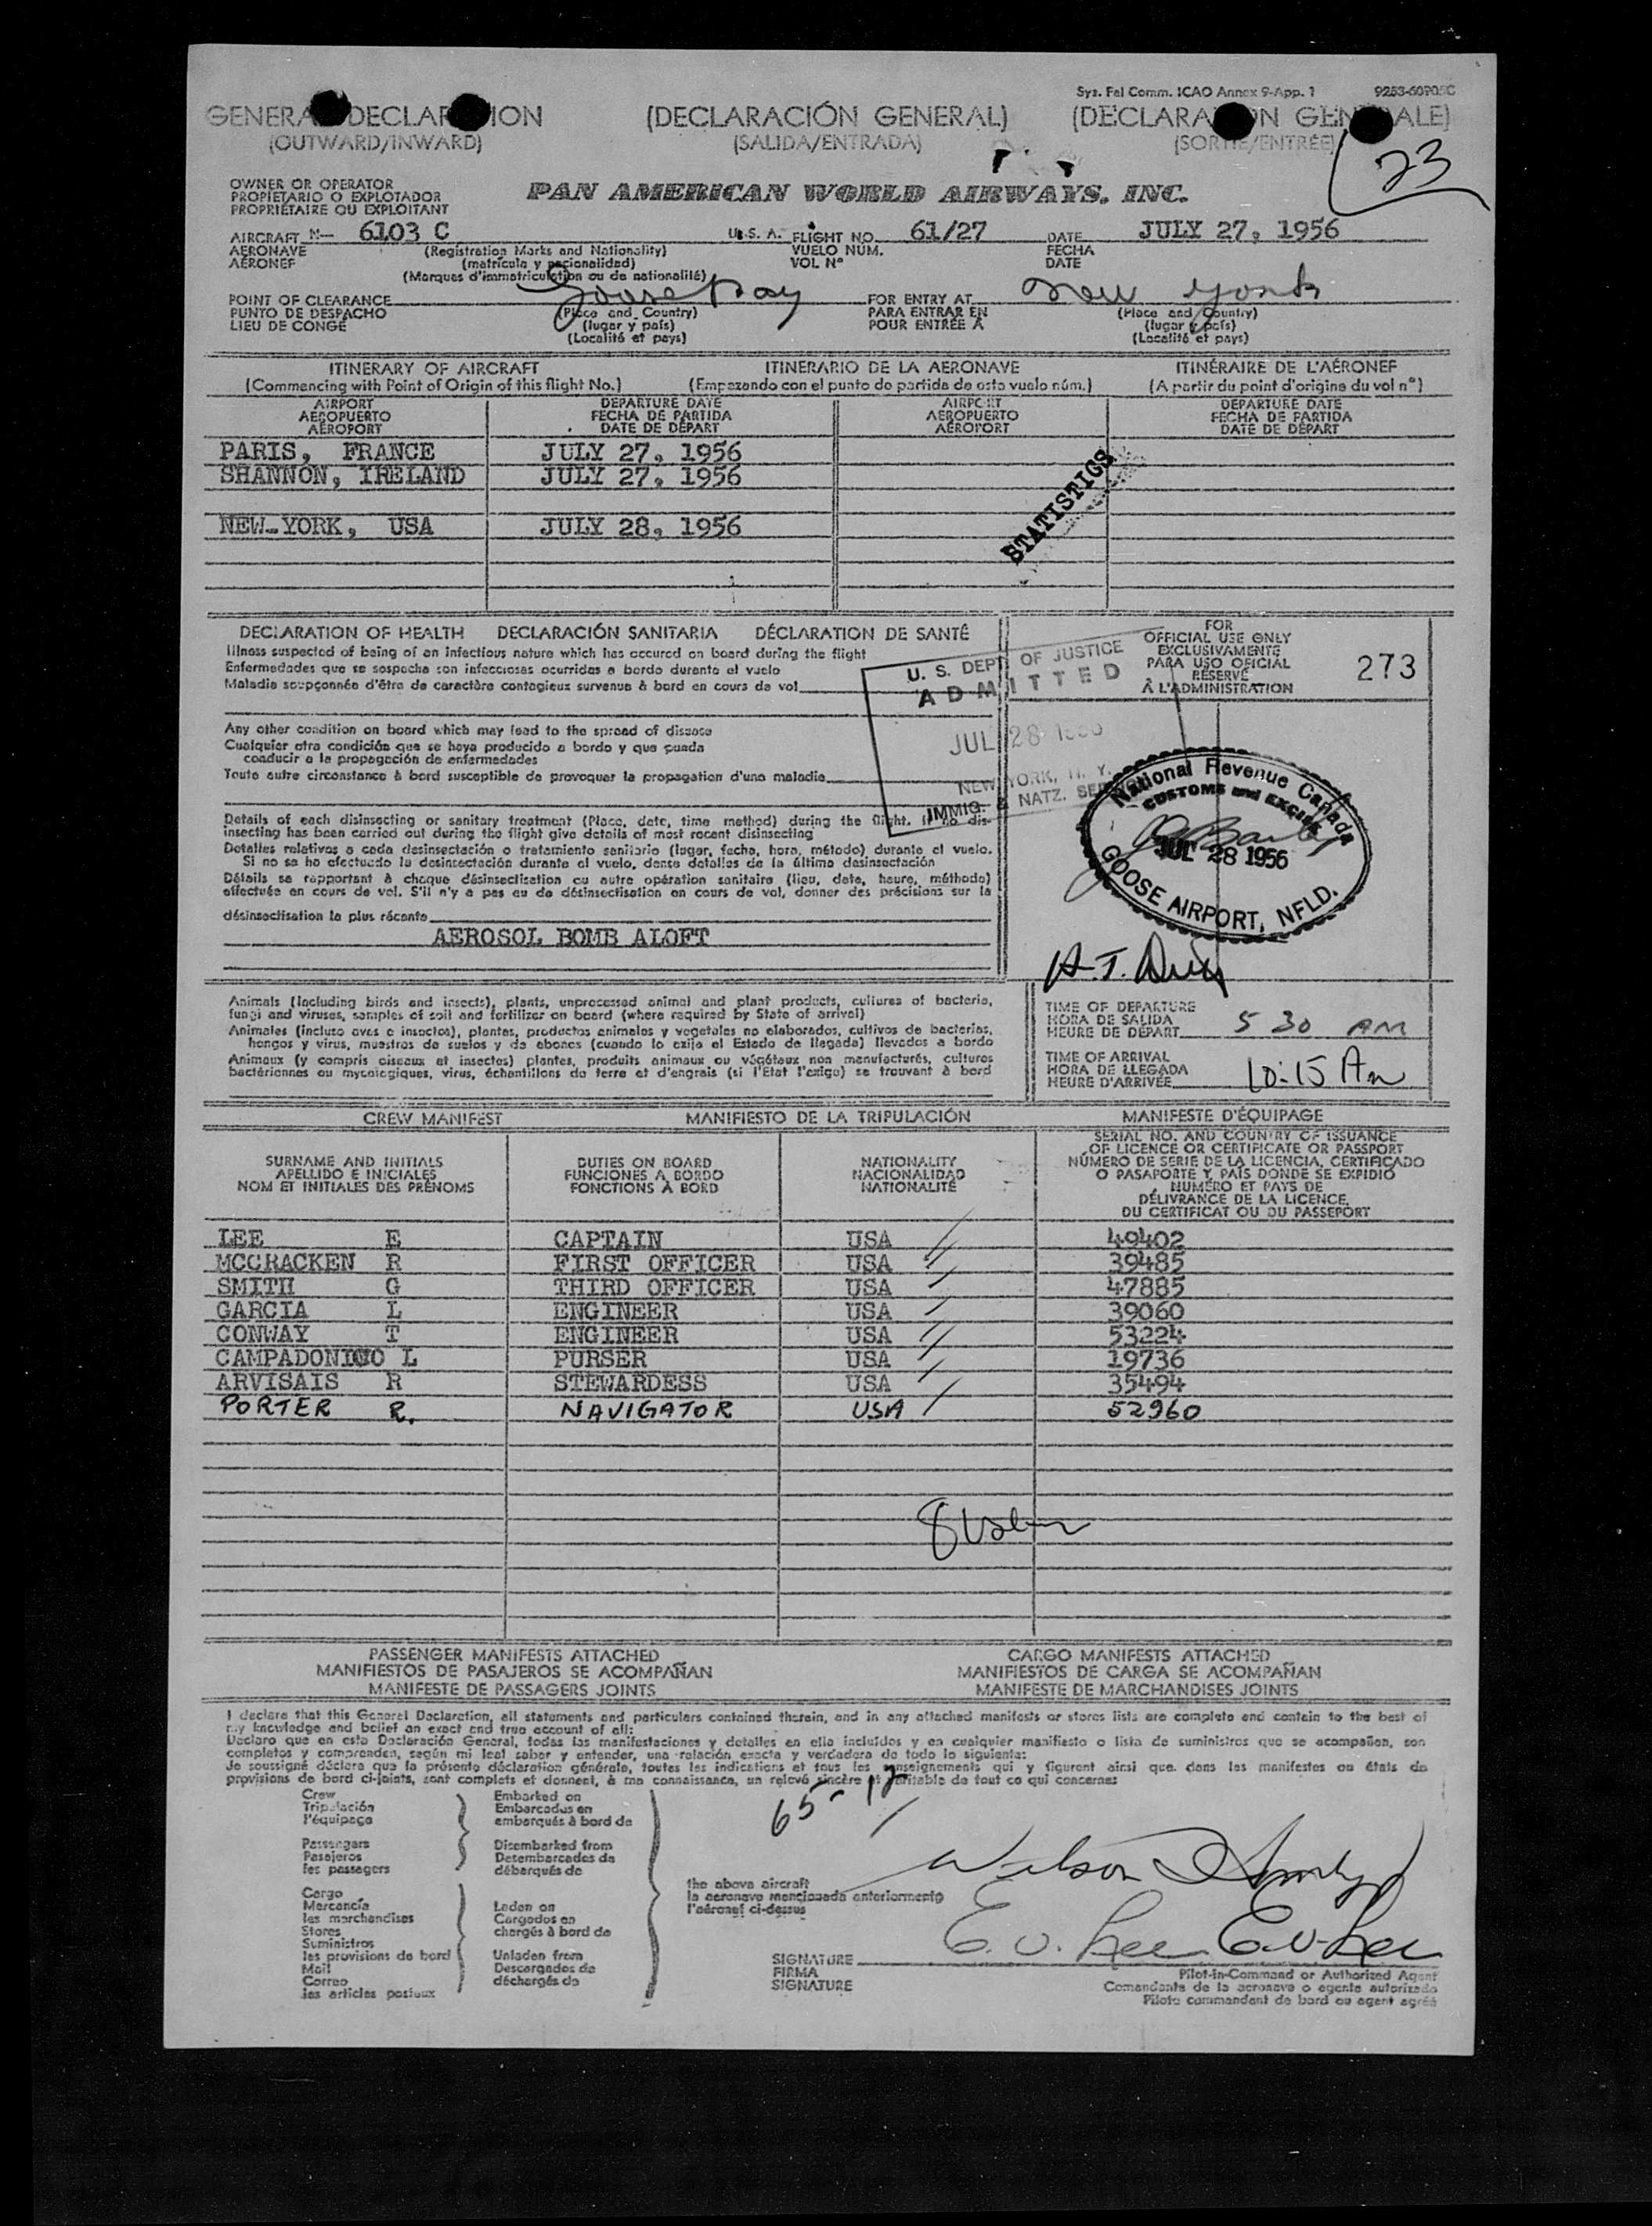 Sys. Fal Comm. ICAO Annex 9-App. 1
GENERAL DECLARATION (DECLARACIÓN GENERAL) (DECLARATION GENERALE)
(OUTWARD/INWARD) (SALIDA/ENTRADA) (SORTIE/ENTRÉE)
23
OWNER OR OPERATOR
PROPIETARIO O EXPLOTADOR
PROPRIÉTAIRE OU EXPLOITANT
PAN AMERICAN WORLD AIRWAYS, INC.
AIRCRAFT N- 6103 C U.S.A. FLIGHT NO. 61/27 DATE JULY 27, 1956
AERONAVE (Registration Marks and Nationality) VUELO NÚM. FECHA
AÉRONEF (matrícula y nacionalidad) VOL Nº DATE
(Marques d'immatriculation ou de nationalité)
POINT OF CLEARANCE Goose Bay FOR ENTRY AT New York
PUNTO DE DESPACHO (Place and Country) PARA ENTRAR EN (Place and Country)
LIEU DE CONGÉ (lugar y país) POUR ENTRÉE À (lugar y país)
(Localité et pays) (Localité et pays)
ITINERARY OF AIRCRAFT ITINERARIO DE LA AERONAVE ITINÉRAIRE DE L'AÉRONEF
(Commencing with Point of Origin of this flight No.) (Empezando con el punto de partida de esta vuelo núm.) (A partir du point d'origine du vol nº)
AIRPORT DEPARTURE DATE AIRPORT DEPARTURE DATE
AEROPUERTO FECHA DE PARTIDA AEROPUERTO FECHA DE PARTIDA
AÉROPORT DATE DE DÉPART AÉROPORT DATE DE DÉPART
PARIS, FRANCE JULY 27, 1956
SHANNON, IRELAND JULY 27, 1956
NEW YORK, USA JULY 28, 1956
STATISTICS
DECLARATION OF HEALTH DECLARACIÓN SANITARIA DÉCLARATION DE SANTÉ
Illness suspected of being of an infectious nature which has occured on board during the flight
Enfermedades que se sospecha son infecciosas ocurridas a bordo durante el vuelo
Maladie soupçonnée d'être de caractère contagieux survenue à bord en cours de vol
FOR
OFFICIAL USE ONLY
EXCLUSIVAMENTE
PARA USO OFICIAL
RÉSERVÉ
À L'ADMINISTRATION
273
U. S. DEPT. OF JUSTICE
ADMITTED
JUL 28 1956
NEW YORK, N. Y.
IMMIG. & NATZ. SERV.
Any other condition on board which may lead to the spread of disease
Cualquier otra condición que se haya producido a bordo y que pueda
conducir a la propagación de enfermedades
Toute autre circonstance à bord susceptible de provoquer la propagation d'une maladie
National Revenue Canada
CUSTOMS and EXCISE
JUL 28 1956
GOOSE AIRPORT, NFLD.
Details of each disinsecting or sanitary treatment (Place, date, time method) during the flight. If no dis-
insecting has been carried out during the flight give details of most recent disinsecting
Detalles relativos a cada desinsectación o tratamiento sanitario (lugar, fecha, hora, método) durante el vuelo.
Si no se ha efectuado la desinsectación durante el vuelo, dense detalles de la última desinsectación
Détails se rapportant à chaque désinsectisation ou autre opération sanitaire (lieu, date, heure, méthode)
effectuée en cours de vol. S'il n'y a pas eu de désinsectisation en cours de vol, donner des précisions sur la
désinsectisation la plus récente
AEROSOL BOMB ALOFT
Animals (including birds and insects), plants, unprocessed animal and plant products, cultures of bacteria,
fungi and viruses, samples of soil and fertilizer on board (where required by State of arrival)
Animales (incluso aves e insectos), plantas, productos animales y vegetales no elaborados, cultivos de bacterias,
hongos y virus, muestras de suelos y de abonos (cuando lo exija el Estado de llegada) llevados a bordo
Animaux (y compris oiseaux et insectes) plantes, produits animaux ou végétaux non manufacturés, cultures
bactériennes ou mycologiques, virus, échantillons de terre et d'engrais (si l'État l'exige) se trouvant à bord
TIME OF DEPARTURE
HORA DE SALIDA
HEURE DE DÉPART 5 30 AM
TIME OF ARRIVAL
HORA DE LLEGADA
HEURE D'ARRIVÉE 10:15 Am
CREW MANIFEST MANIFIESTO DE LA TRIPULACIÓN MANIFESTE D'ÉQUIPAGE
SURNAME AND INITIALS
APELLIDO E INICIALES
NOM ET INITIALES DES PRÉNOMS
DUTIES ON BOARD
FUNCIONES A BORDO
FONCTIONS À BORD
NATIONALITY
NACIONALIDAD
NATIONALITÉ
SERIAL NO. AND COUNTRY OF ISSUANCE
OF LICENCE OR CERTIFICATE OR PASSPORT
NÚMERO DE SERIE DE LA LICENCIA, CERTIFICADO
O PASAPORTE Y PAÍS DONDE SE EXPIDIÓ
NUMÉRO ET PAYS DE
DÉLIVRANCE DE LA LICENCE,
DU CERTIFICAT OU DU PASSEPORT
LEE E CAPTAIN USA 49402
MCCRACKEN R FIRST OFFICER USA 39485
SMITH G THIRD OFFICER USA 47885
GARCIA L ENGINEER USA 39060
CONWAY T ENGINEER USA 53224
CAMPADONICO L PURSER USA 19736
ARVISAIS R STEWARDESS USA 35494
PORTER R. NAVIGATOR USA 52960
PASSENGER MANIFESTS ATTACHED CARGO MANIFESTS ATTACHED
MANIFIESTOS DE PASAJEROS SE ACOMPAÑAN MANIFIESTOS DE CARGA SE ACOMPAÑAN
MANIFESTE DE PASSAGERS JOINTS MANIFESTE DE MARCHANDISES JOINTS
I declare that this General Declaration, all statements and particulars contained therein, and in any attached manifests or stores lists are complete and contain to the best of
my knowledge and belief an exact and true account of all:
Declaro que en esta Declaración General, todas las manifestaciones y detalles en ella incluídos y en cualquier manifiesto o lista de suministros que se acompañen, son
completos y comprenden, según mi leal saber y entender, una relación exacta y verdadera de todo lo siguiente:
Je soussigné déclare que la présente déclaration générale, toutes les indications et tous les renseignements qui y figurent ainsi que dans les manifestes ou états de
provisions de bord ci-joints, sont complets et donnent, à ma connaissance, un relevé sincère et véritable de tout ce qui concerne:
65-12
Crew
Tripulación
l'équipage
Passengers
Pasajeros
les passagers
Cargo
Mercancía
les marchandises
Stores
Suministros
les provisions de bord
Mail
Correo
les articles postaux
Embarked on
Embarcados en
embarqués à bord de
Disembarked from
Detembarcados de
débarqués de
Laden on
Cargados en
chargés à bord de
Unladen from
Descargados de
déchargés de
the above aircraft
la aeronave mencionada anteriormente
l'aéronef ci-dessus
Wilson
E.V. Lee E.V. Lee
SIGNATURE
FIRMA
SIGNATURE
Pilot-in-Command or Authorized Agent
Comandante de la aeronave o agente autorizado
Pilote commandant de bord ou agent agréé